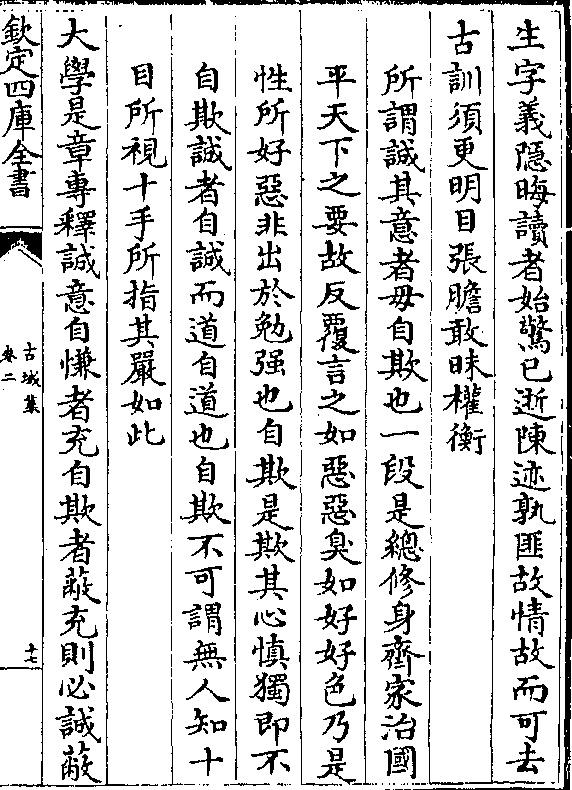 生字義隱晦讀者始驚已逝陳迹孰匪故情故而可去
古訓須更明目張膽敢昧權衡
所謂誠其意者毋自欺也一段是總修身齊家治國
平天下之要故反覆言之如惡惡臭如好好色乃是
性所好惡非出於勉强也自欺是欺其心慎獨即不
自欺誠者自誠而道自道也自欺不可謂無人知十
目所視十手所指其嚴如此
大學是章專釋誠意自慊者充自欺者蔽充則必誠蔽
欽定四庫全書
古城集
卷二
十七